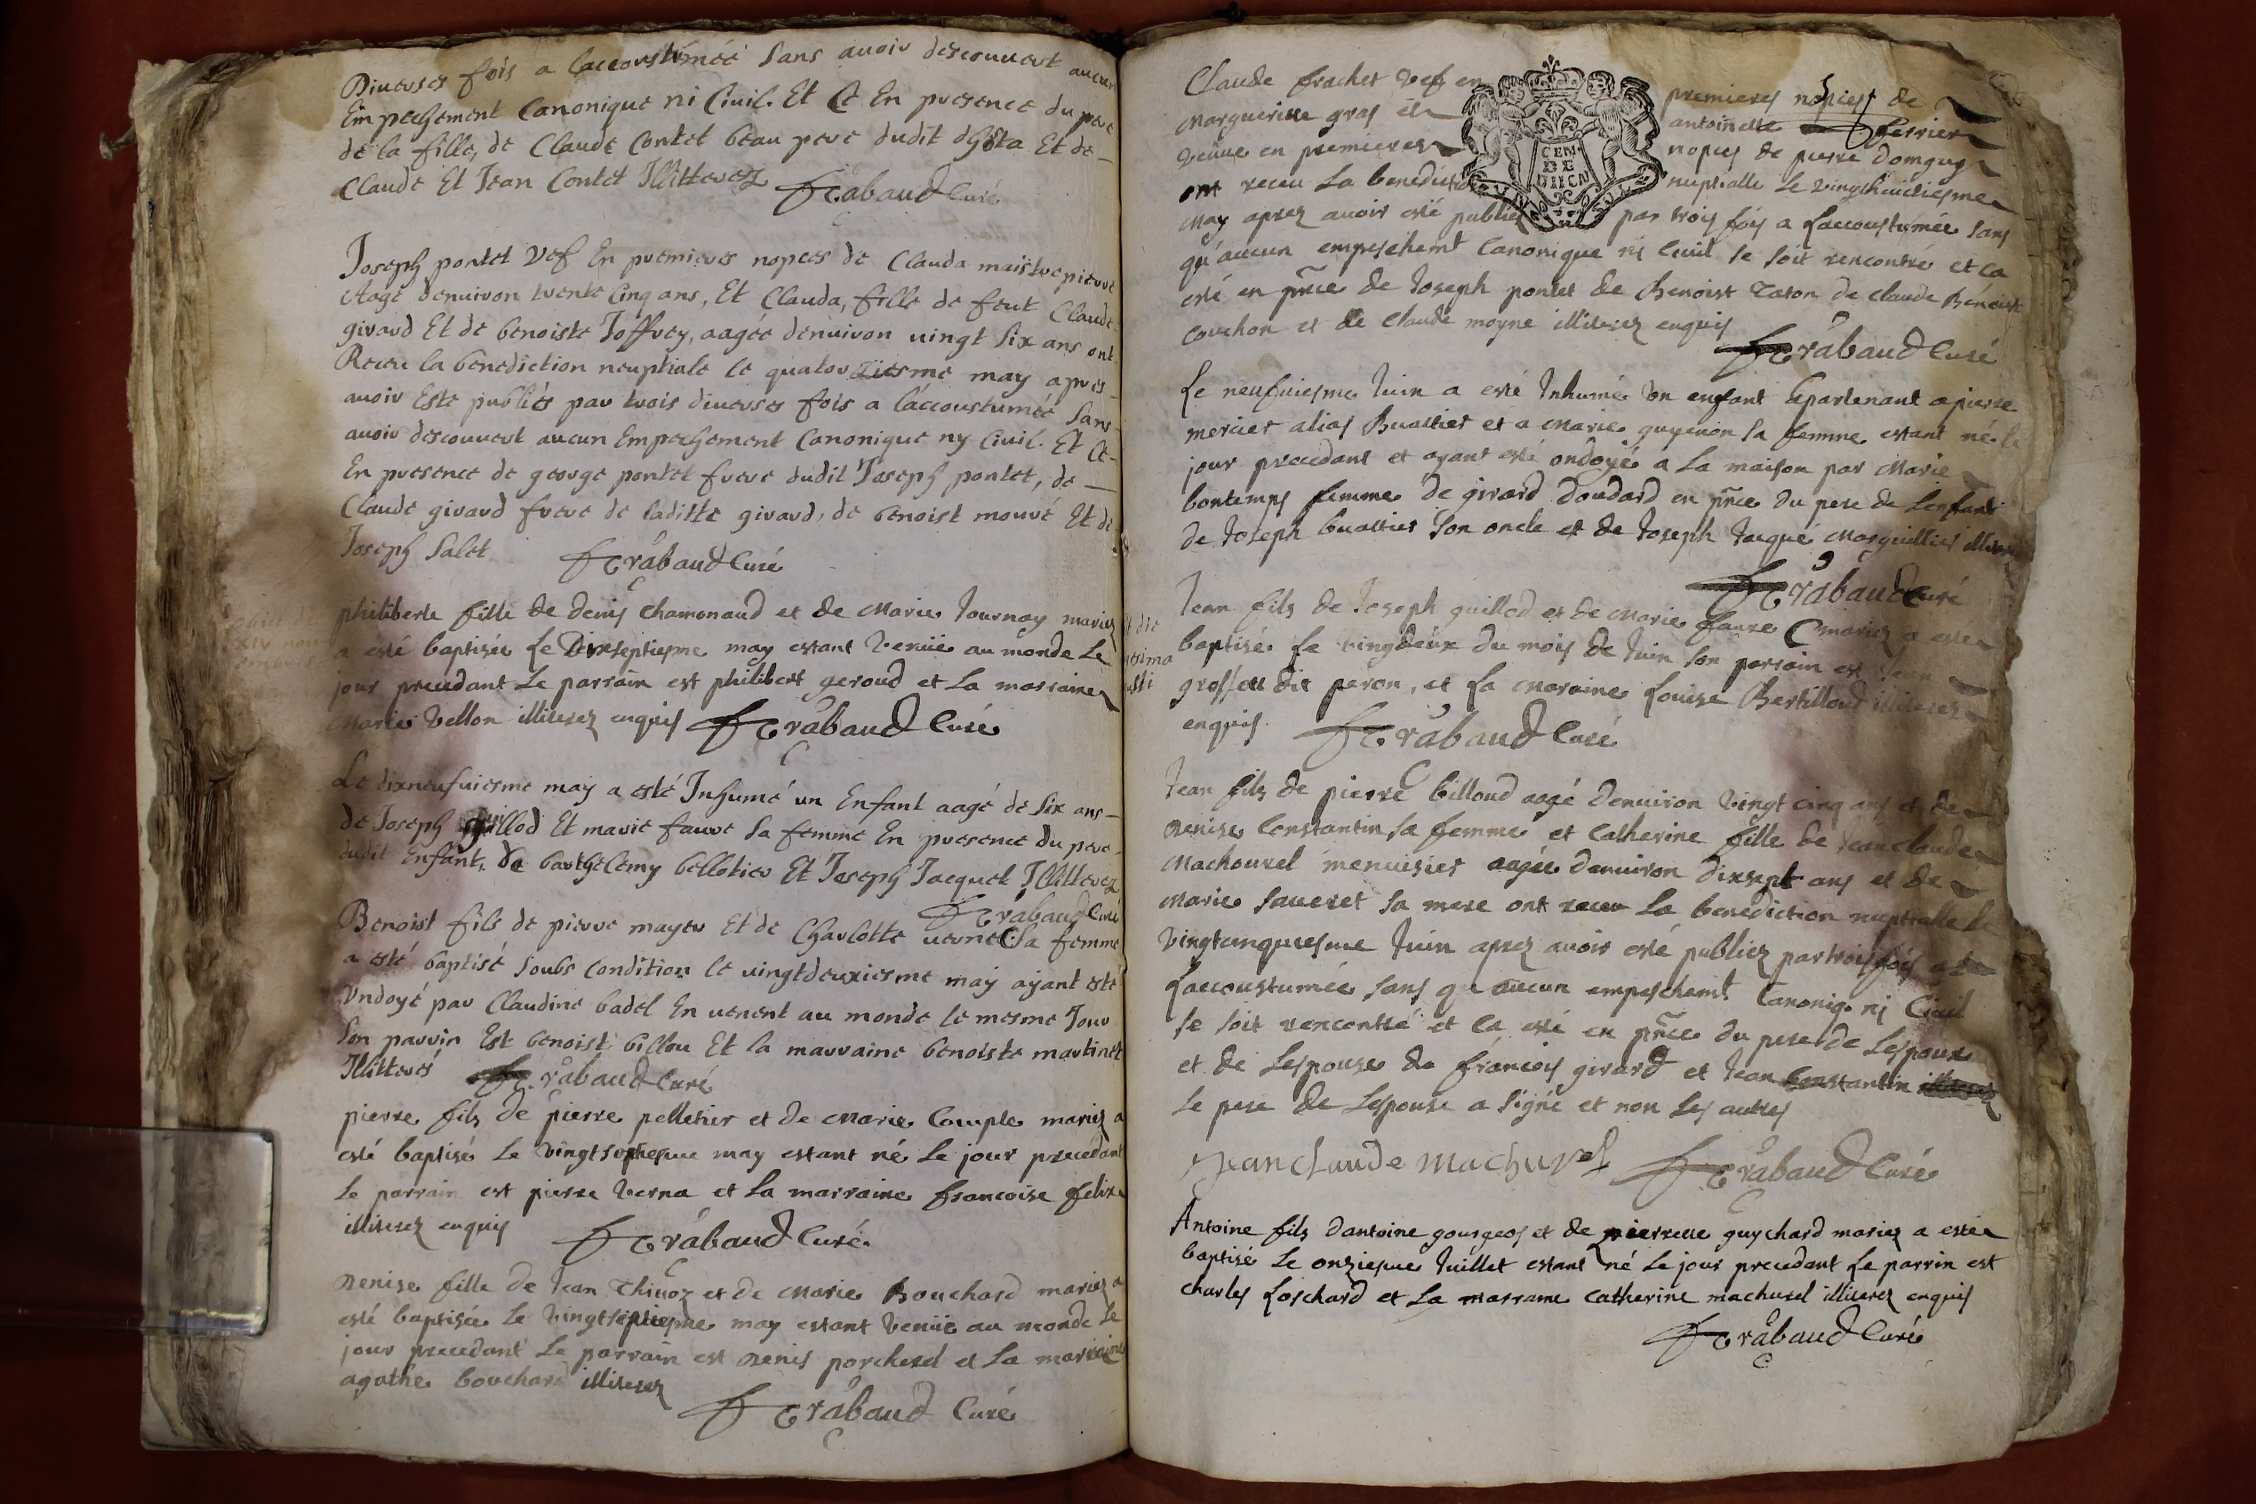 Diverses fois a laccoustumée sans avoir descouvert aucun
Empeschement Canonique ni Civil. Et Ce En presence du pere
de la fille, de Claude Contet beau pere dudit Et de
Claude Et Jean Contet Illitterez Trabaud Curé
Joseph pontet Vef En premieres nopces de Clauda maistrepierre
Aagé denviron trente Cinq ans, Et Clauda, fille de feut Claude
girard Et de benoiste Joffrey, aagée denviron vingt six ans ont
Receu la benediction neuptiale le quatorziesme may apres
avoir Esté publiés par trois diverses fois a laccoustumée sans
avoir descouvert aucun Empeschement Canonique ny Civil. Et Ce
En presence de george pontet frere dudit Joseph pontet, de
Claude girard frere de laditte girard, de benoist mouré Et de
Joseph Salet Trabaud Curé
philiberte fille de denis Chamonaud et de Marie Tournay mariez
a esté baptisée le Dixseptiesme may estant venüe au monde le
jour precedant le parrain est philibert geroud et la marraine
Marie Vellon illiterez enquis Trabaud Curé
Le dixneufviesme may a esté Inhumé un Enfant aagé de six ans
de Joseph guillod Et marie faure sa femme En presence du pere
dudit Enfant, de barthelemy bellotier Et Joseph Jacquet Illitterez
Trabaud Curé
Benoist fils de pierre mayer Et de Charlotte verne sa femme
a esté baptisé soubs Condition le vingtdeuxiesme may ayant esté
Undoyé par Claudine badel En venent au monde le mesme Jour
son parrin Est benoist billou Et la marraine benoiste martinet
Illitterés Trabaud Curé
pierre fils de pierre pelletier et de Marie Comple mariez a
esté baptisé le vingtseptiesme may estant né le jour precedant
le parrain est pierre Verna et la marraine francoise felix
illiterez enquis Trabaud Curé
Denise fille de Jean Thivoz et de Marie Bouchard mariez a
esté baptisée le vingtseptiesme may estant venüe au monde le
jour precedant le parrain est Denis porcherel et la marraine
agathe bouchard illiterez
Trabaud Curé
Claude frachet Vef en premieres nopces de
Margueritte gras et antoinette ferrier
veuve en premieres nopces de pierre Domguy
ont receu la benediction nuptialle le vingthuictiesme
May aprez avoir esté publiez par trois fois a laccoustumée sans
qu'aucun empeschemt Canonique ni Civil se soit rencontré et ca
esté en pñce de Joseph pontet de Benoist Taton de Claude Benoist
Couchon et de Claude moyne illiterez enquis
Trabaud Curé
Le neufviesme Juin a esté Inhumé Un enfant apartenant a pierre
mercier alias Buattier et a Marie guyenon sa femme estant né le
jour precedant et ayant esté ondoyé a la maison par Marie
bontemps femme de girard Doudard en pñce du pere de Lenfant
de Joseph buattier son oncle et de Joseph Jacque Marguillier
Trabaud Curé
Jean fils de Joseph guillod et de Marie faure mariez a esté
baptisé le vingdeux du mois de Juin son parrain est Jean
grossett dit peron, et la Maraine Louise Bertilloud illiterez
enquis. Trabaud Curé
Jean fils de pierre billoud aagé denviron vingt cinq ans et de
Denise Constantin sa femme et Catherine fille de Jean claude
Machourel menuisier aagée denviron dixsept ans et de
Marie Saveret sa mere ont receu la benediction nuptialle le
vingtcinquiesme Juin aprez avoir esté publiez par trois fois a
laccoustumée sans qu aucun empeschemt Canoniq ni Civil
se soit rencontré et ca esté en pñce du pere de Lespoux
et de Lespouse de francois girard et Jean Constantin
le pere de Lespouse a signé et non les autres
Jean claude Machurel Trabaud Curé
Antoine fils dantoine gourgeos et de pierrette guychard mariez a esté
baptisé le onziesme Juillet estant né le jour precedant le parrin est
Charles Loschard et la marrame Catherine machurel illiterez enquis
Trabaud Curé